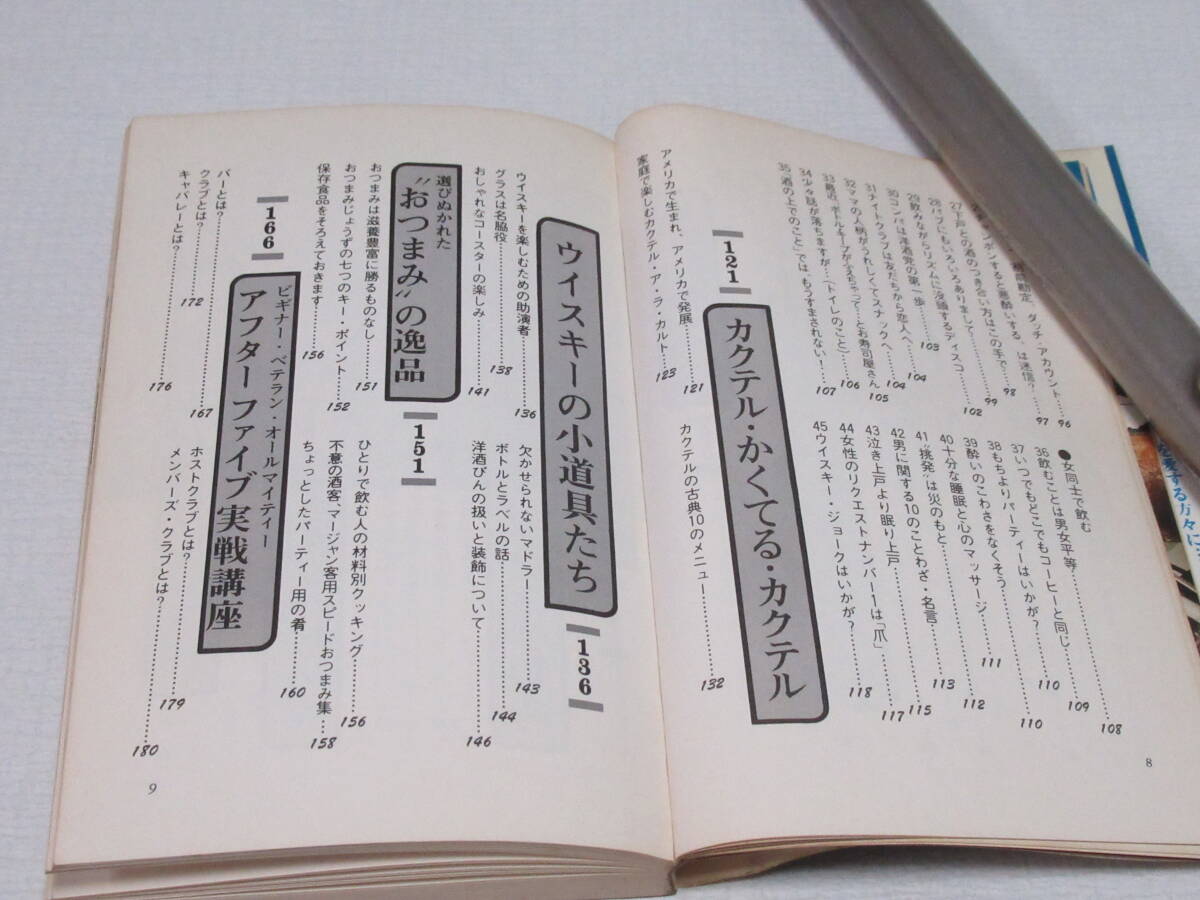 勘定、ダッチ・アカウント……96
ポンすると悪酔いする、は迷信?……97
27下戸との酒のつき合い方はこの手で……98
28パブにもいろいろありまして……99
29飲みながらリズムに没頭するディスコ……102
30コンパは洋酒党の第一歩……103
31ナイトクラブは友だちから恋人へ……104
32ママの人柄がうれしくてスナックへ……104
33最近、ボトルキープがふえちゃって…とお寿司屋さん……105
34少々話が落ちますが…(トイレのこと)……106
35「酒の上でのこと」では、もうすまされない!……107
●女同士で飲む……108
36飲むことは男女平等……109
37いつでもどこでもコーヒーと同じ……110
38もちよりパーティーはいかが?……110
39酔いのこわさをなくそう……111
40十分な睡眠と心のマッサージ……112
41〝挑発〟は災のもと……113
42男に関する10のことわざ・名言……115
43泣き上戸より眠り上戸……117
44女性のリクエストナンバー1は「爪」……118
45ウイスキー・ジョークはいかが?
121
カクテル・かくてる・カクテル
アメリカで生まれ、アメリカで発展……121
家庭で楽しむカクテル・ア・ラ・カルト……123
カクテルの古典10のメニュー……132
8
ウイスキーの小道具たち
136
ウイスキーを楽しむための助演者……136
グラスは名脇役……138
おしゃれなコースターの楽しみ……141
欠かせられないマドラー……143
ボトルとラベルの話……144
洋酒びんの扱いと装飾について……146
選びぬかれた
〝おつまみ〟の逸品
151
おつまみは滋養豊富に勝るものなし……151
おつまみじょうずの七つのキー・ポイント……152
保存食品をそろえておきます……156
ひとりで飲む人の材料別クッキング……156
不意の酒客、マージャン客用スピードおつまみ集……158
ちょっとしたパーティー用の肴……160
166
ビギナー・ベテラン・オールマイティー
アフターファイブ実戦講座
バーとは?……167
クラブとは?……172
キャバレーとは?……176
ホストクラブとは?……179
メンバーズ・クラブとは?……180
9
を愛する方々に